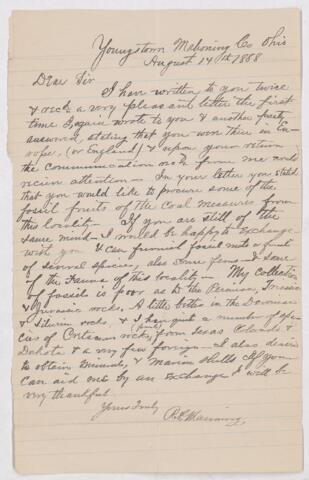 Youngstown Mahoning Co Ohio
August 14th 1888
Dear Sir
I have written to you twice
& recd a very pleasant letter the first
time I again wrote to you & another party
answered stating that you were then in Eu-
rope, (or England) & upon your return
the communication recd from me would
receive attention – In your letter you stated
that you would like to procure some of the
fossil fruits of the Coal measures from
this locality – If you are still of the
same mind – I would be happy to exchange
with you & can furnish fossil nuts or fruit
of several species, also some ferns – & some
of the Fauna of this locality – My collection
of fossils is poor as to the Permian, Triassic
& Jurassic rocks, A little better in the Devonian
& Silurian rocks, & I have quite a number of spe-
cies of Cretaceous rocks from Texas Colorado &
Dakota & a very few foreign – I also desire
to obtain & Marine shells If you
can aid me by an Exchange I will be
very thankful
Yours Truly
R. Manning